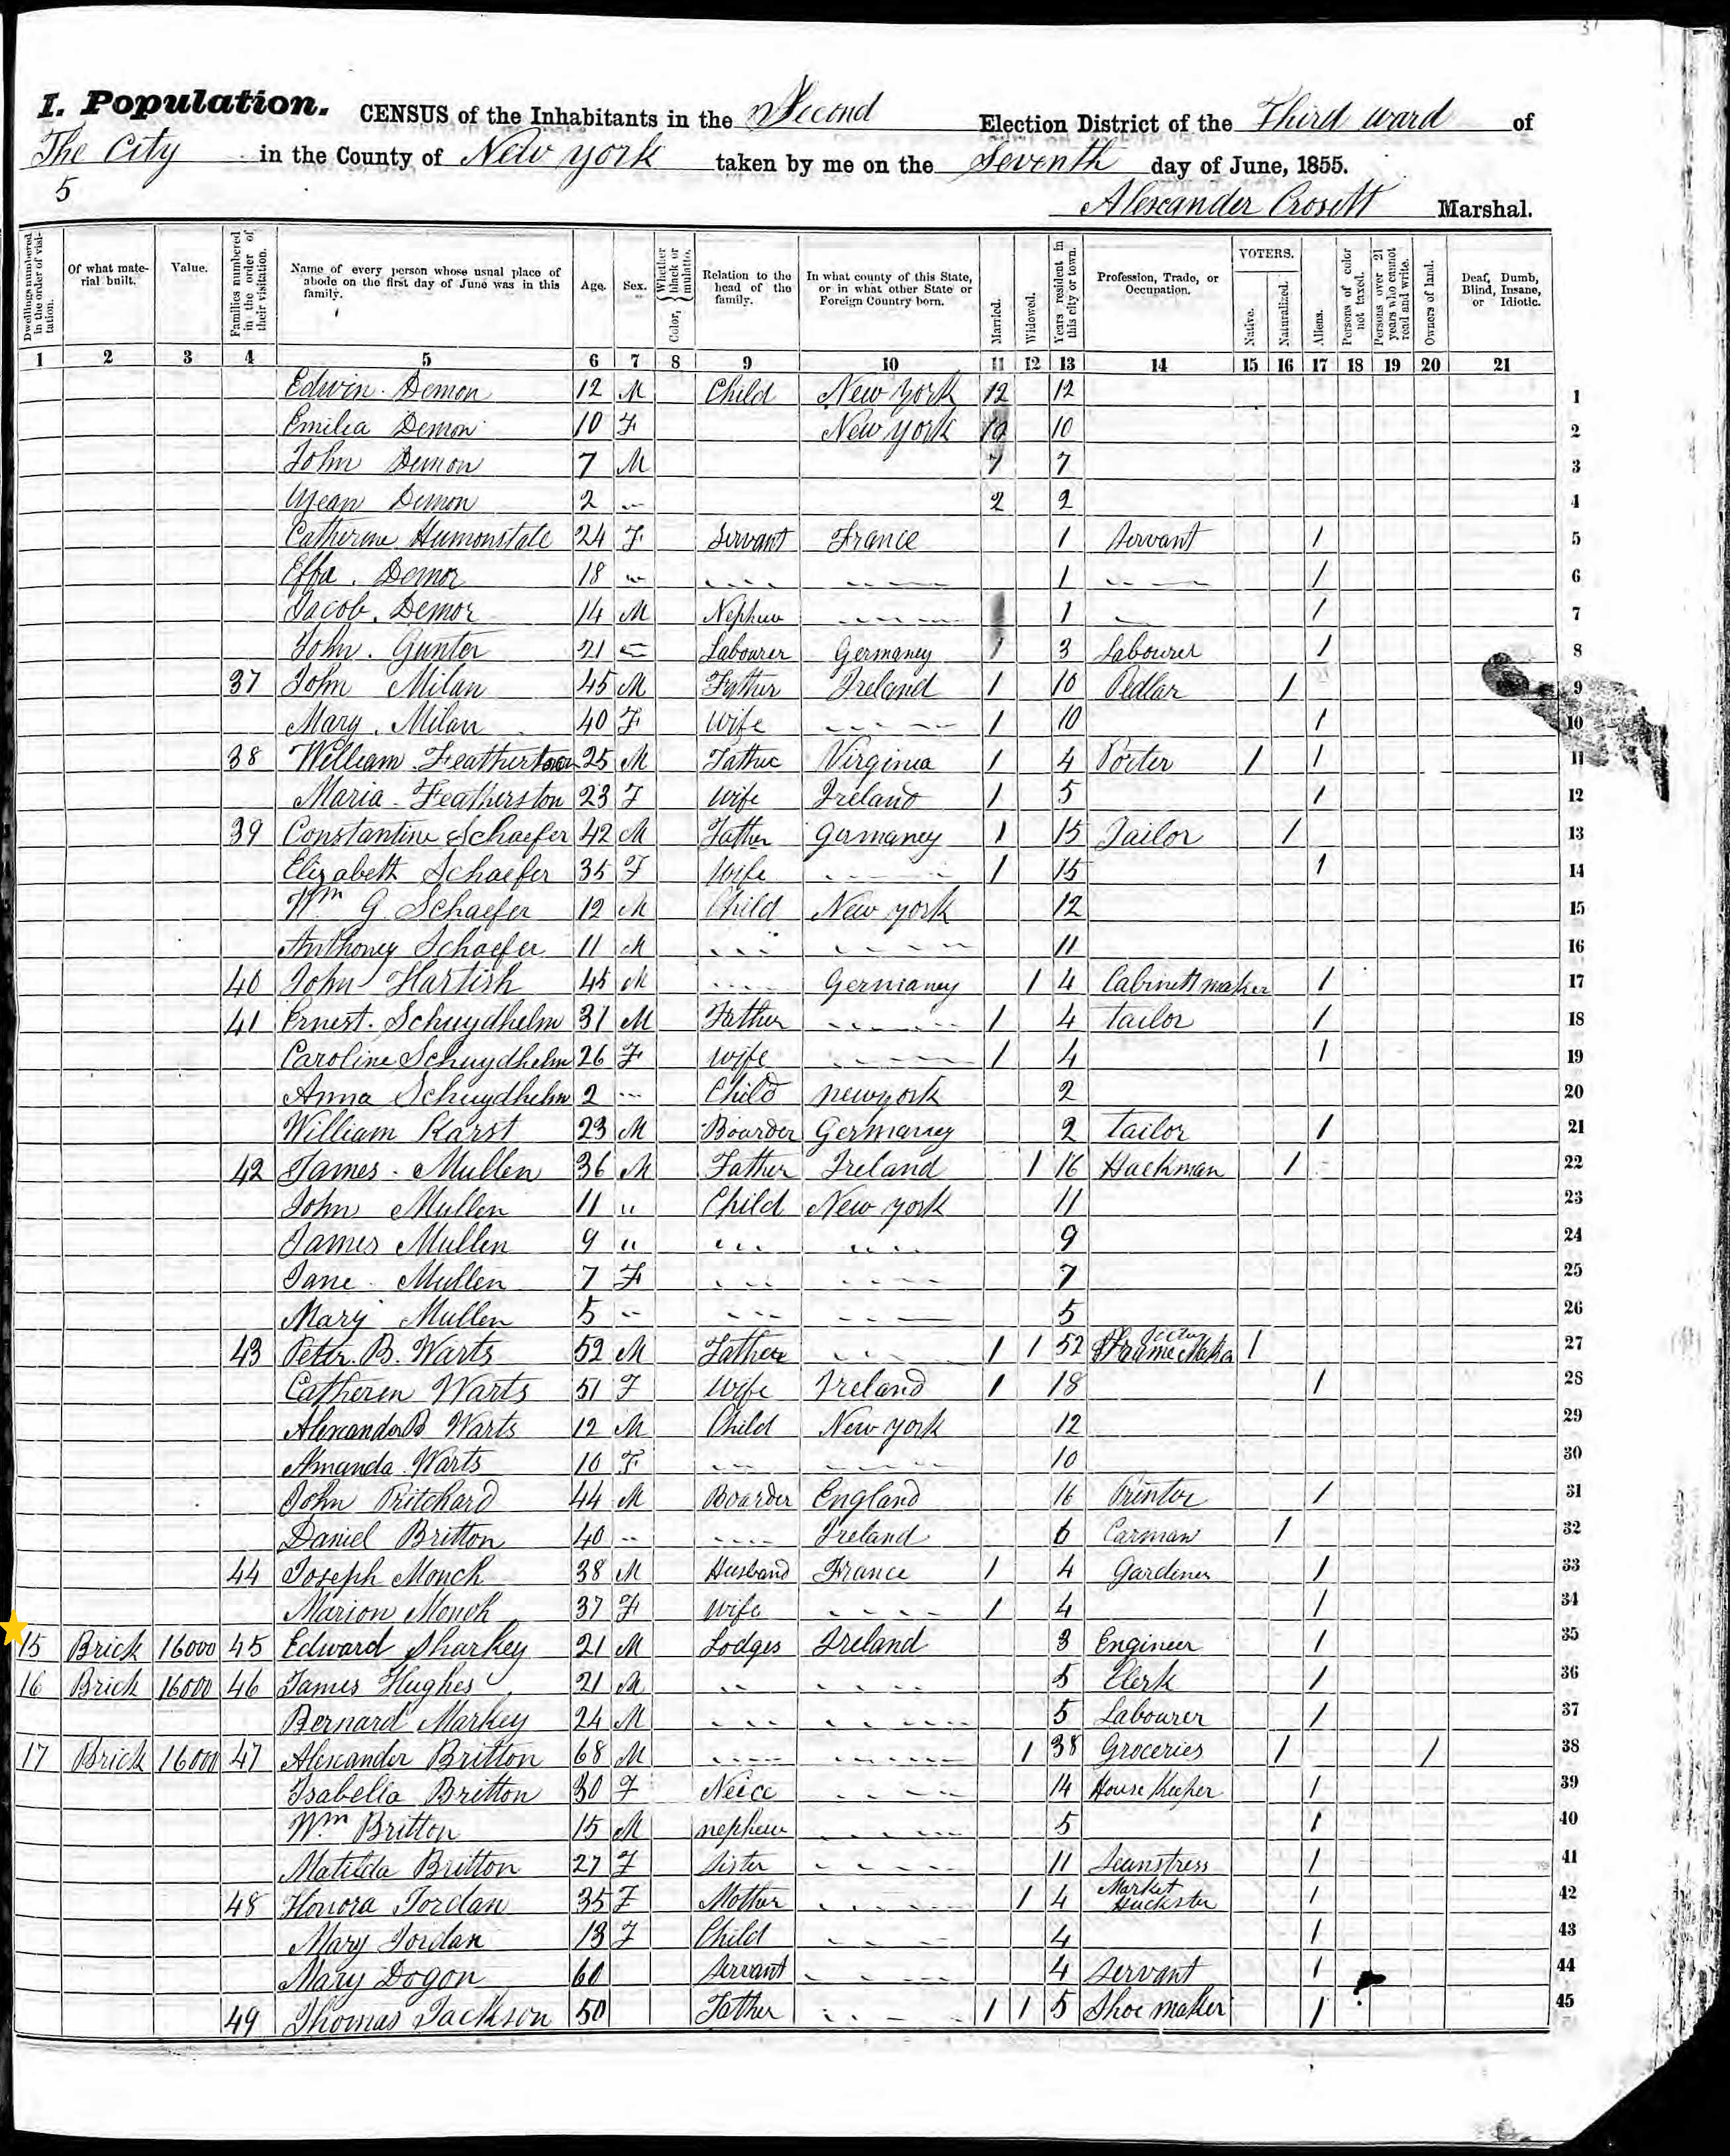 31
I. Population. CENSUS of the Inhabitants in the Second Election District of the Third ward of
The City in the County of New york taken by me on the Seventh day of June, 1855.
5
Alexander Crosett Marshal.
Dwellings numbered in the order of visitation. Of what material built. Value. Families numbered in the order of their visitation. Name of every person whose usual place of abode on the first day of June was in this family. Age. Sex. Color, Whether black or mulatto. Relation to the head of the family. In what county of this State, or in what other State or Foreign Country born. Married. Widowed. Years resident in this city or town. Profession, Trade, or Occupation. VOTERS. Native. Naturalized. Aliens. Persons of color not taxed. Persons over 21 years who cannot read and write. Owners of land. Deaf, Dumb, Blind, Insane, or Idiotic.
1 2 3 4 5 6 7 8 9 10 11 12 13 14 15 16 17 18 19 20 21
Edwin Demon 12 M Child New york 12 12 1
Emilia Demon 10 F New york 10 10 2
John Demon 7 M 7 7 3
Demon 2 " 2 2 4
Catherine Humonstall 24 F Servant France 1 Servant 1 5
Effa. Demor 18 " 1 1 6
Jacob. Demor 14 M Nephew 1 1 7
John. Gunter 21 Labourer Germaney 1 3 Labourer 1 8
37 John Milan 45 M Father Ireland 1 10 Pedlar 1 9
Mary. Milan 40 F Wife 1 10 1 10
38 William Featherton 25 M Father Virginia 1 4 Porter 1 1 11
Maria Featherston 23 F Wife Ireland 1 5 1 12
39 Constantine Schaefer 42 M Father Germaney 1 15 Tailor 1 13
Elizabeth Schaefer 35 F Wife 1 15 1 14
Wm G. Schaefer 12 M Child New york 12 15
Anthoney Schaefer 11 M 11 16
40 John Hartish 45 M Germaney 1 4 Cabinett maker 1 17
41 Ernest. Schuydhelm 31 M Father 1 4 Tailor 1 18
Caroline Schuydhelm 26 F Wife 1 4 1 19
Anna Schuydhelm 2 Child newyork 2 20
William Karst 23 M Boarder Germaney 2 Tailor 1 21
42 James. Mullen 36 M Father Ireland 1 16 Hackman 1 22
John Mullen 11 " Child New york 11 23
James Mullen 9 " 9 24
Jane Mullen 7 F 7 25
Mary Mullen 5 5 26
43 Peter. B. Warts 52 M Father 1 1 52 1 27
Catheren Warts 51 F Wife Ireland 1 18 1 28
Alexander B Warts 12 M Child New york 12 29
Amanda Warts 10 F 10 30
John Pritchard 44 M Boarder England 16 Printer 1 31
Daniel Britton 40 Ireland 6 Carman 1 32
44 Joseph Monck 38 M Husband France 1 4 Gardiner 1 33
Marion Monck 37 F Wife 1 4 1 34
15 Brick 16000 45 Edward Sharkey 21 M Lodges Ireland 3 Engineer 1 35
16 Brick 16000 46 James Hughes 21 M 5 Clerk 1 36
Bernard Markey 24 M 5 Labourer 1 37
17 Brick 16000 47 Alexander Britton 68 M 1 38 Groceries 1 1 38
Isabella Britton 30 F Neice 14 House Keeper 1 39
Wm Britton 15 M nephew 5 1 40
Matilda Britton 27 F Sister 11 Seamstress 1 41
48 Honora Jordan 35 F Mother 1 4 Market Huckster 1 42
Mary Jordan 13 F Child 4 1 43
Mary Dogon 60 Servant 4 Servant 1 44
49 Thomas Jackson 50 Father 1 1 5 Shoe maker 1 45